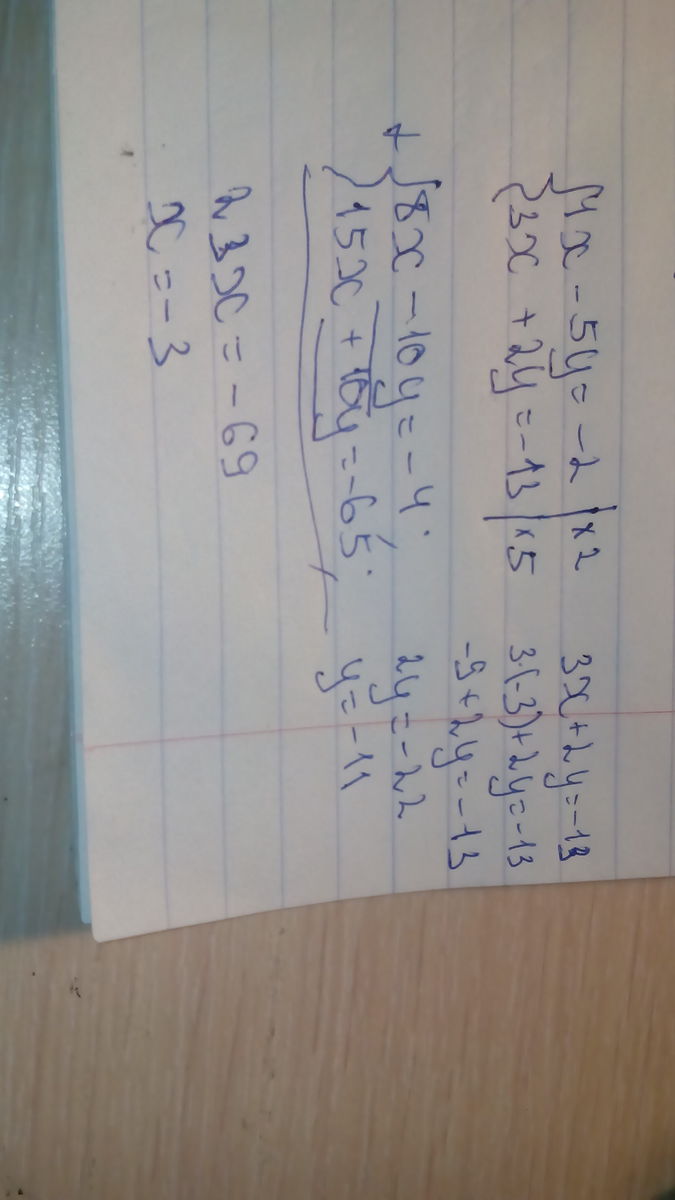 {4x - 5y = -2 | x2
{3x + 2y = -13 | x5
+ {8x - 10y = -4.
{15x + 10y = -65.
23x = -69
x = -3
3x + 2y = -13
3·(-3) + 2y = -13
-9 + 2y = -13
2y = -22
y = -11